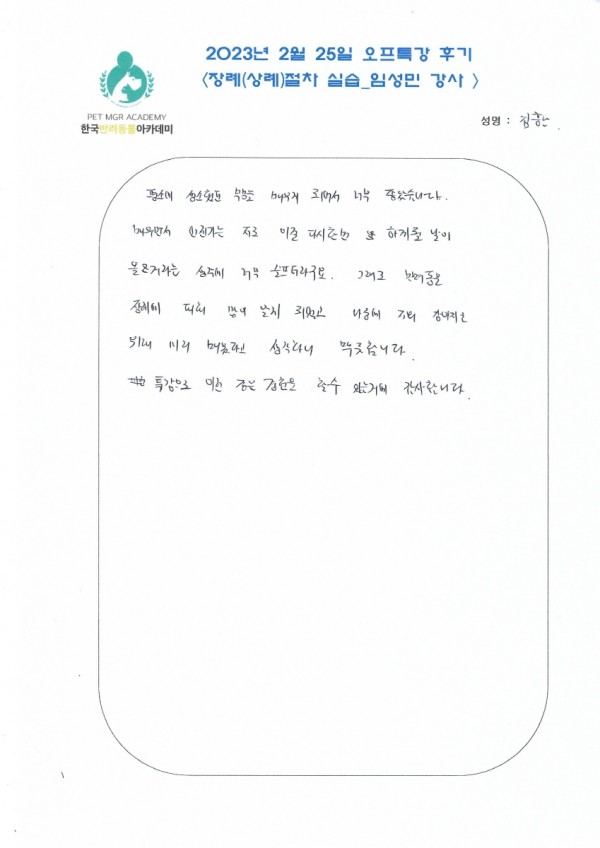 2023년 2월 25일 오프특강 후기
<장례(상례)절차 실습_임성민 강사 >
PET MGR ACADEMY
한국반려동물아카데미
성명 :
평소에 생소했던 부분도 배우게 되면서 너무 좋았습니다.
배우면서 언젠가는 저도 이걸 다시한번 하게될 날이
올거라는 생각에 너무 슬프더라구요. 그래도 반려동물
장례에 대해 많이 알게 되었고 나중에 저희 강아지를
위해 미리 배웠다고 생각하니 뿌듯합니다.
특강으로 이런 좋은 경험을 할수 있는거에 감사합니다.